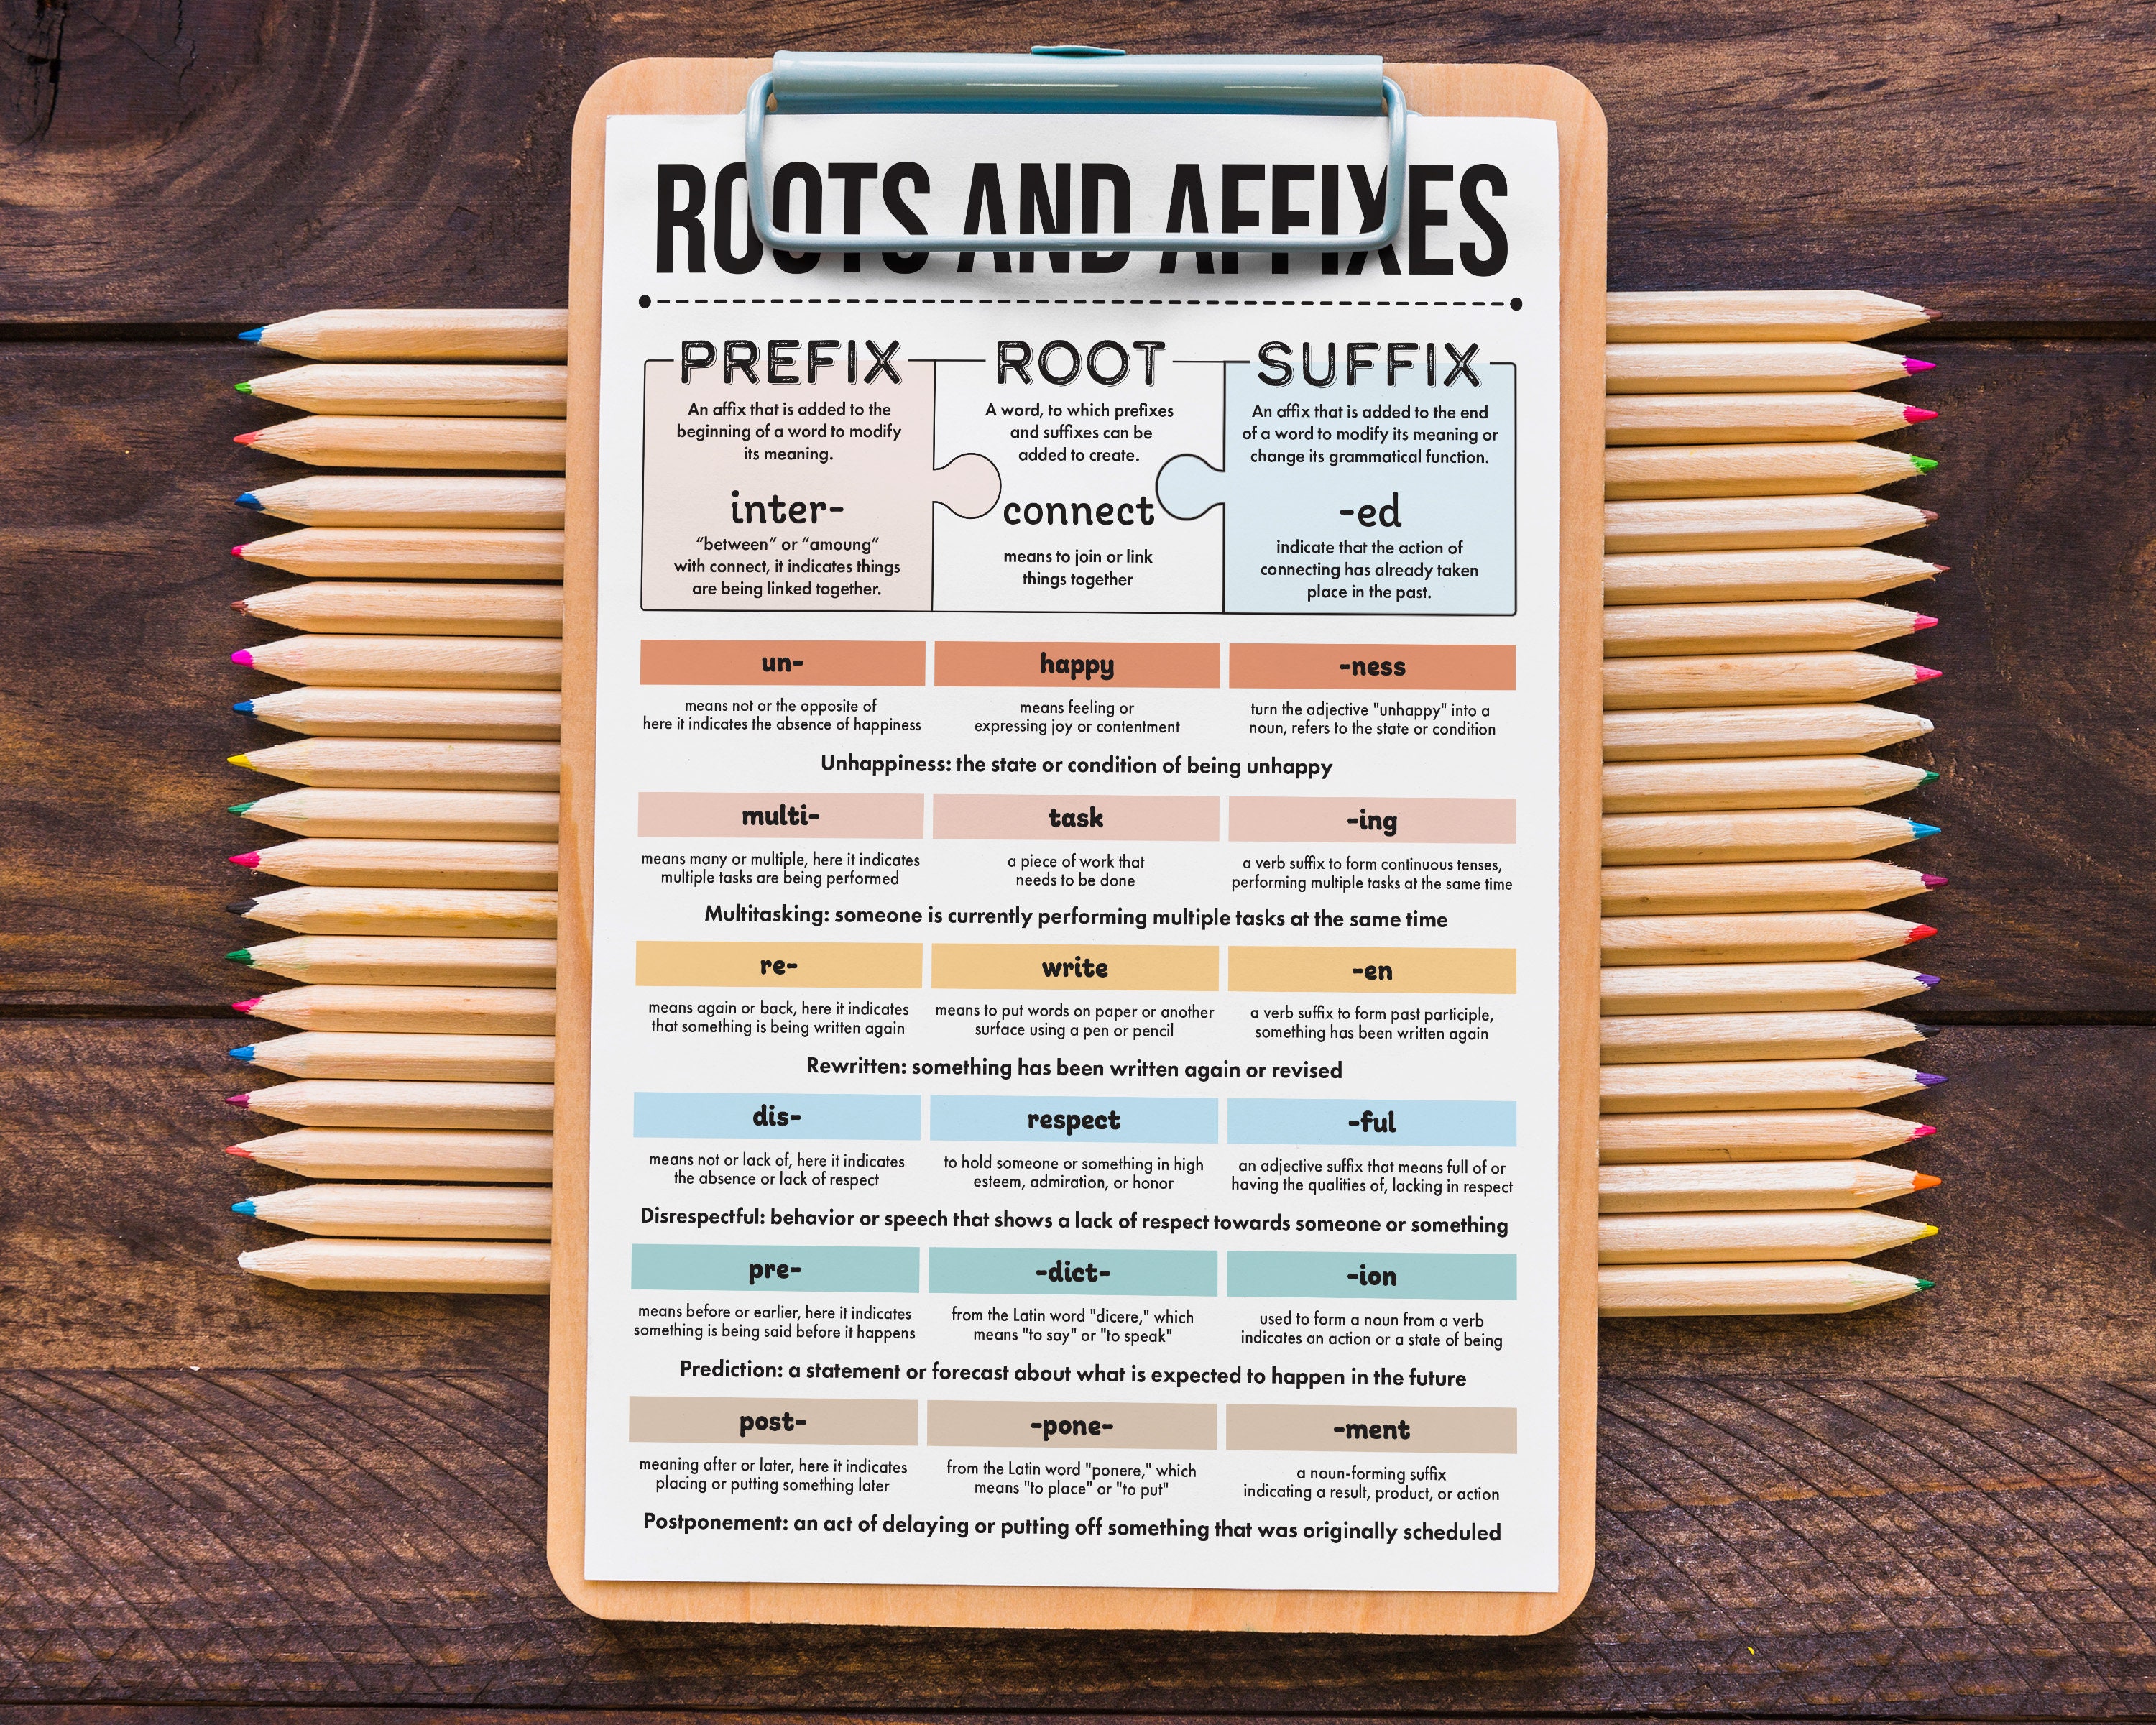 ROOTS AND AFFIXES
PREFIX
An affix that is added to the
beginning of a word to modify
its meaning.
inter-
“between” or “amoung”
with connect, it indicates things
are being linked together.
ROOT
A word, to which prefixes
and suffixes can be
added to create.
connect
means to join or link
things together
SUFFIX
An affix that is added to the end
of a word to modify its meaning or
change its grammatical function.
-ed
indicate that the action of
connecting has already taken
place in the past.
un-
means not or the opposite of
here it indicates the absence of happiness
happy
means feeling or
expressing joy or contentment
-ness
turn the adjective "unhappy" into a
noun, refers to the state or condition
Unhappiness: the state or condition of being unhappy
multi-
means many or multiple, here it indicates
multiple tasks are being performed
task
a piece of work that
needs to be done
-ing
a verb suffix to form continuous tenses,
performing multiple tasks at the same time
Multitasking: someone is currently performing multiple tasks at the same time
re-
means again or back, here it indicates
that something is being written again
write
means to put words on paper or another
surface using a pen or pencil
-en
a verb suffix to form past participle,
something has been written again
Rewritten: something has been written again or revised
dis-
means not or lack of, here it indicates
the absence or lack of respect
respect
to hold someone or something in high
esteem, admiration, or honor
-ful
an adjective suffix that means full of or
having the qualities of, lacking in respect
Disrespectful: behavior or speech that shows a lack of respect towards someone or something
pre-
means before or earlier, here it indicates
something is being said before it happens
-dict-
from the Latin word "dicere," which
means "to say" or "to speak"
-ion
used to form a noun from a verb
indicates an action or a state of being
Prediction: a statement or forecast about what is expected to happen in the future
post-
meaning after or later, here it indicates
placing or putting something later
-pone-
from the Latin word "ponere," which
means "to place" or "to put"
-ment
a noun-forming suffix
indicating a result, product, or action
Postponement: an act of delaying or putting off something that was originally scheduled